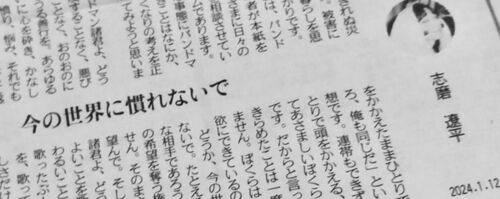 志磨 遼平
2024.1.12
きれぬ災
。被害に
暮らしを思
かりです。
は、バンド
者が本紙を
さまに日々の
相談させてい
んであります。
事態とバンドマ
ことはなにか、
くなりの考えを正
てみようと思いま
ドマン諸君よ、どう
ことなく、悪び
することなく、おのおのに
る蛮行を、あらゆる
に心を砕き、かなし
憤り、悩み、それでも
今の世界に慣れないで
をかかえたままひとり
ろ、俺も同じだ」とい
想です。連帯もできず
とりで頭をかかえる、
てあさましいぼくら
です。だからと言っ
きらめたことは一度
ません。ぼくらは
欲にできているの
どうか、今の世
ないで。たとえ
な相手であろう
の希望を奪う権
せん。そのま
望んで。そし
諸君よ、どう
よいことを
わるいこと
歌ったぶ
を、歌っ
しさだけ